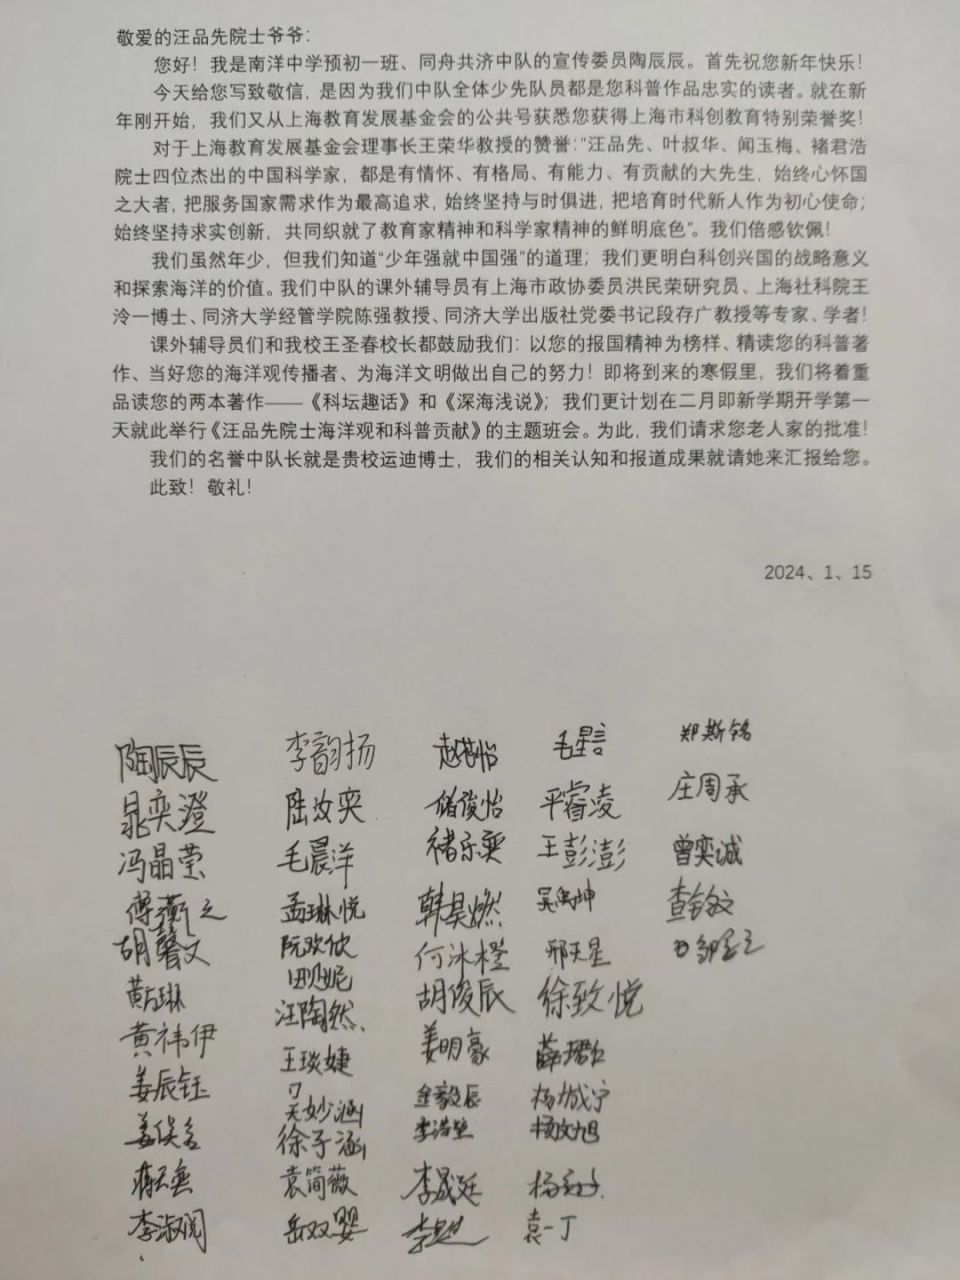 敬爱的汪品先院士爷爷：
您好！我是南洋中学预初一班、同舟共济中队的宣传委员陶辰辰。首先祝您新年快乐！
今天给您写致敬信，是因为我们中队全体少先队员都是您科普作品忠实的读者。就在新
年刚开始，我们又从上海教育发展基金会的公共号获悉您获得上海市科创教育特别荣誉奖！
对于上海教育发展基金会理事长王荣华教授的赞誉：“汪品先、叶叔华、闻玉梅、褚君浩
院士四位杰出的中国科学家，都是有情怀、有格局、有能力、有贡献的大先生，始终心怀国
之大者，把服务国家需求作为最高追求，始终坚持与时俱进，把培育时代新人作为初心使命；
始终坚持求实创新，共同织就了教育家精神和科学家精神的鲜明底色”。我们倍感钦佩！
我们虽然年少，但我们知道“少年强就中国强”的道理；我们更明白科创兴国的战略意义
和探索海洋的价值。我们中队的课外辅导员有上海市政协委员洪民荣研究员、上海社科院王
泠一博士、同济大学经管学院陈强教授、同济大学出版社党委书记段存广教授等专家、学者！
课外辅导员们和我校王圣春校长都鼓励我们：以您的报国精神为榜样、精读您的科普著
作、当好您的海洋观传播者、为海洋文明做出自己的努力！即将到来的寒假里，我们将着重
品读您的两本著作——《科坛趣话》和《深海浅说》；我们更计划在二月即新学期开学第一
天就此举行《汪品先院士海洋观和科普贡献》的主题班会。为此，我们请求您老人家的批准！
我们的名誉中队长就是贵校运迪博士，我们的相关认知和报道成果就请她来汇报给您。
此致！敬礼！
2024、1、15
陶辰辰 李韵扬 毛星言 郑斯铭
晁奕澄 陆汝奕 储俊怡 平睿凌 庄周承
冯晶莹 毛晨洋 褚乐奕 王彭澎 曾奕诚
傅蘅之 孟琳悦 韩昊燃 吴禹坤
胡馨文 阮欢欣 何沐橙 邢天星
汪陶然 胡俊辰 徐致悦
黄祎伊 王琰婕 姜明豪
姜辰钰 金毅辰 杨城宁
徐子涵 杨文旭
袁简薇 李晟廷
李淑阅 岳双婴 袁一丁